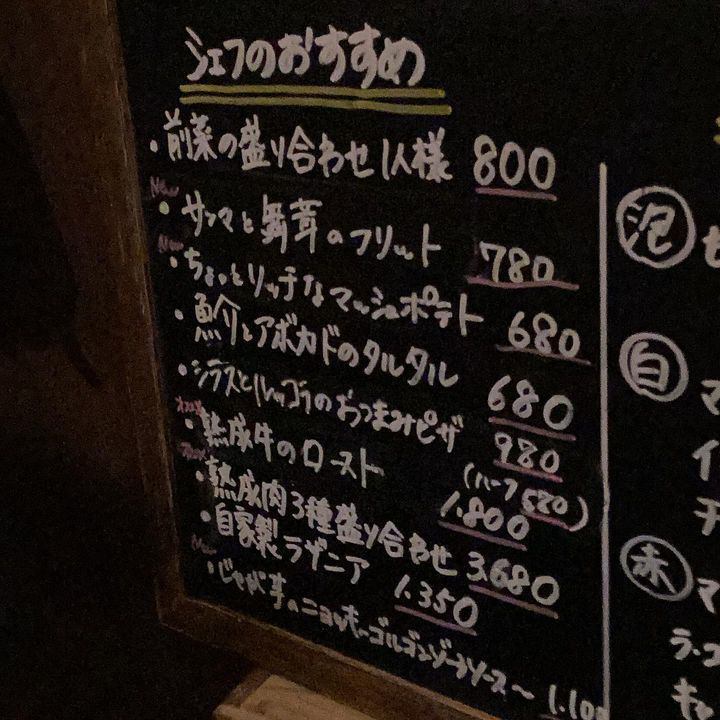 シェフのおすすめ
・前菜の盛り合わせ1人様 800
New
・サンマと舞茸のフリット 780
New
・ちょっとリッチなマッシュポテト 680
・魚介とアボカドのタルタル 680
・シラスとルッコラのおつまみピザ 980
(ハーフ 580)
・熟成牛のロースト 1.800
・熟成肉3種盛り合わせ 3.680
・自家製ラザニア 1.350
New
・じゃが芋のニョッキ〜ゴルゴンゾーラソース〜 1.10
泡
白
マ
イ
チ
赤
マ
ラ・コ
キャ